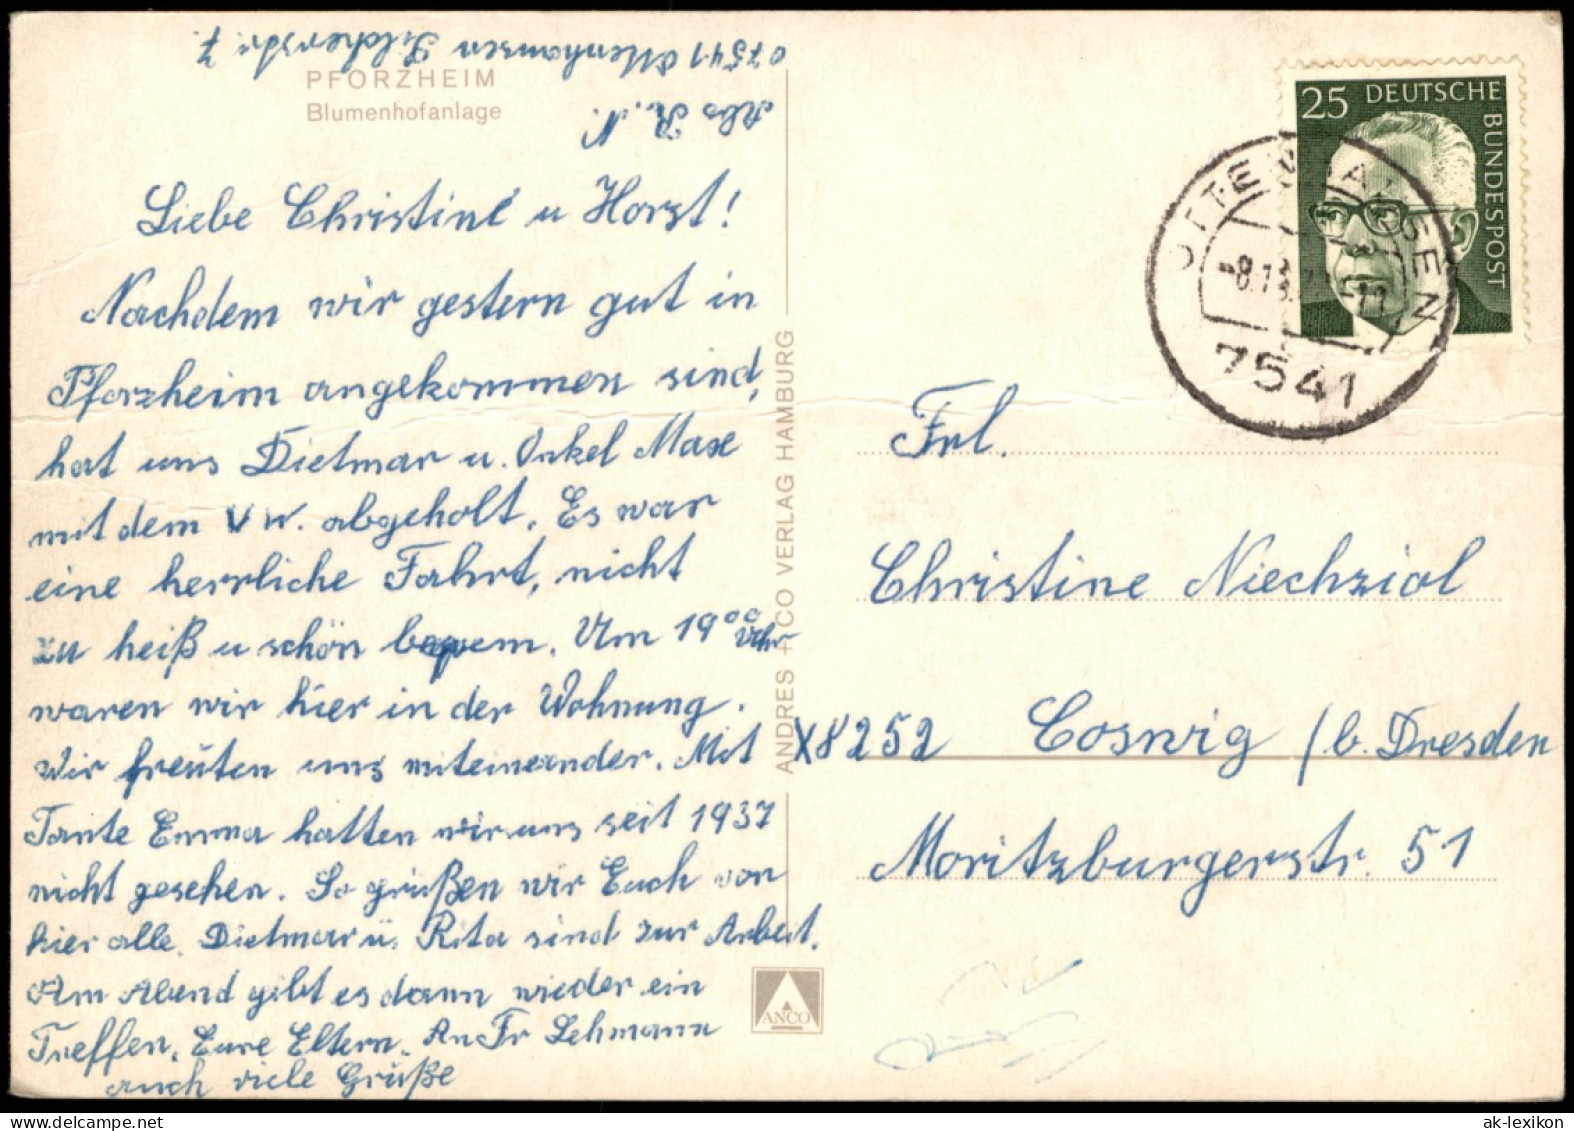 07541 Ottenhausen Silcherstr. 7.
Abs R. N.
PFORZHEIM
Blumenhofanlage
Liebe Christine u Horst!
Nachdem wir gestern gut in
Pforzheim angekommen sind,
hat uns Dietmar u. Onkel Max
mit dem VW. abgeholt. Es war
eine herrliche Fahrt, nicht
zu heiß u schön bequem. Um 19⁰⁰ Uhr
waren wir hier in der Wohnung.
Wir freuten uns miteinander. Mit
Tante Emma hatten wir uns seit 1937
nicht gesehen. So grüßen wir Euch von
hier alle. Dietmar u. Rita sind zur Arbeit.
Am Abend gibt es dann wieder ein
Treffen. Eure Eltern. An Fr Lehmann
auch viele Grüße
ANDRES + CO VERLAG HAMBURG
ANCO
25 DEUTSCHE
BUNDESPOST
OTTENHAUSEN
7541
Frl.
Christine Niechziol
X8252 Coswig / b. Dresden
Moritzburgerstr. 51
ak-lexikon